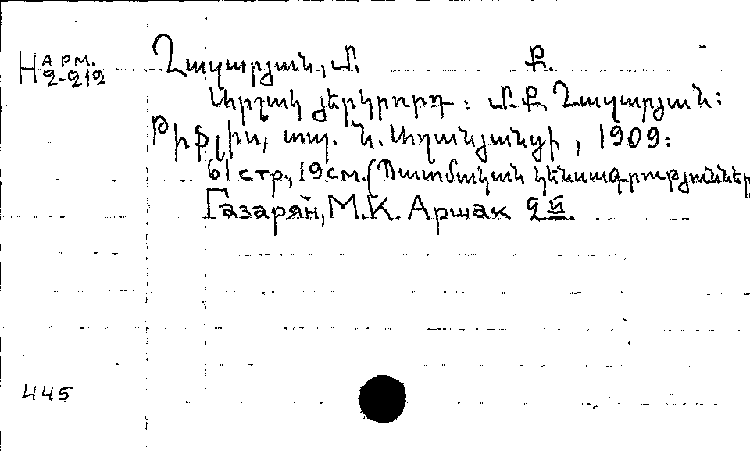 Н арм. 2-212
Ղազարյան, Մ. Ք.
Արշակ երկրորդ : Մ.Ք. Ղազարյան:
Թիֆլիս, տպ. Ն. Աղանյանցի, 1909:
61 стр., 19 см. (Պատմական կենսագրություններ
Газарян, М.К. Аршак 2й.
445